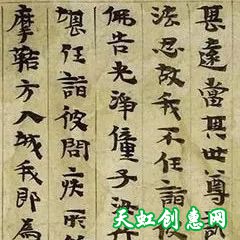 甚遠當其世尊
法忍故我不任詣
佛告光淨僮子汝行
堪任詣彼問疾所
摩詰方入城我即為
天虹创意网